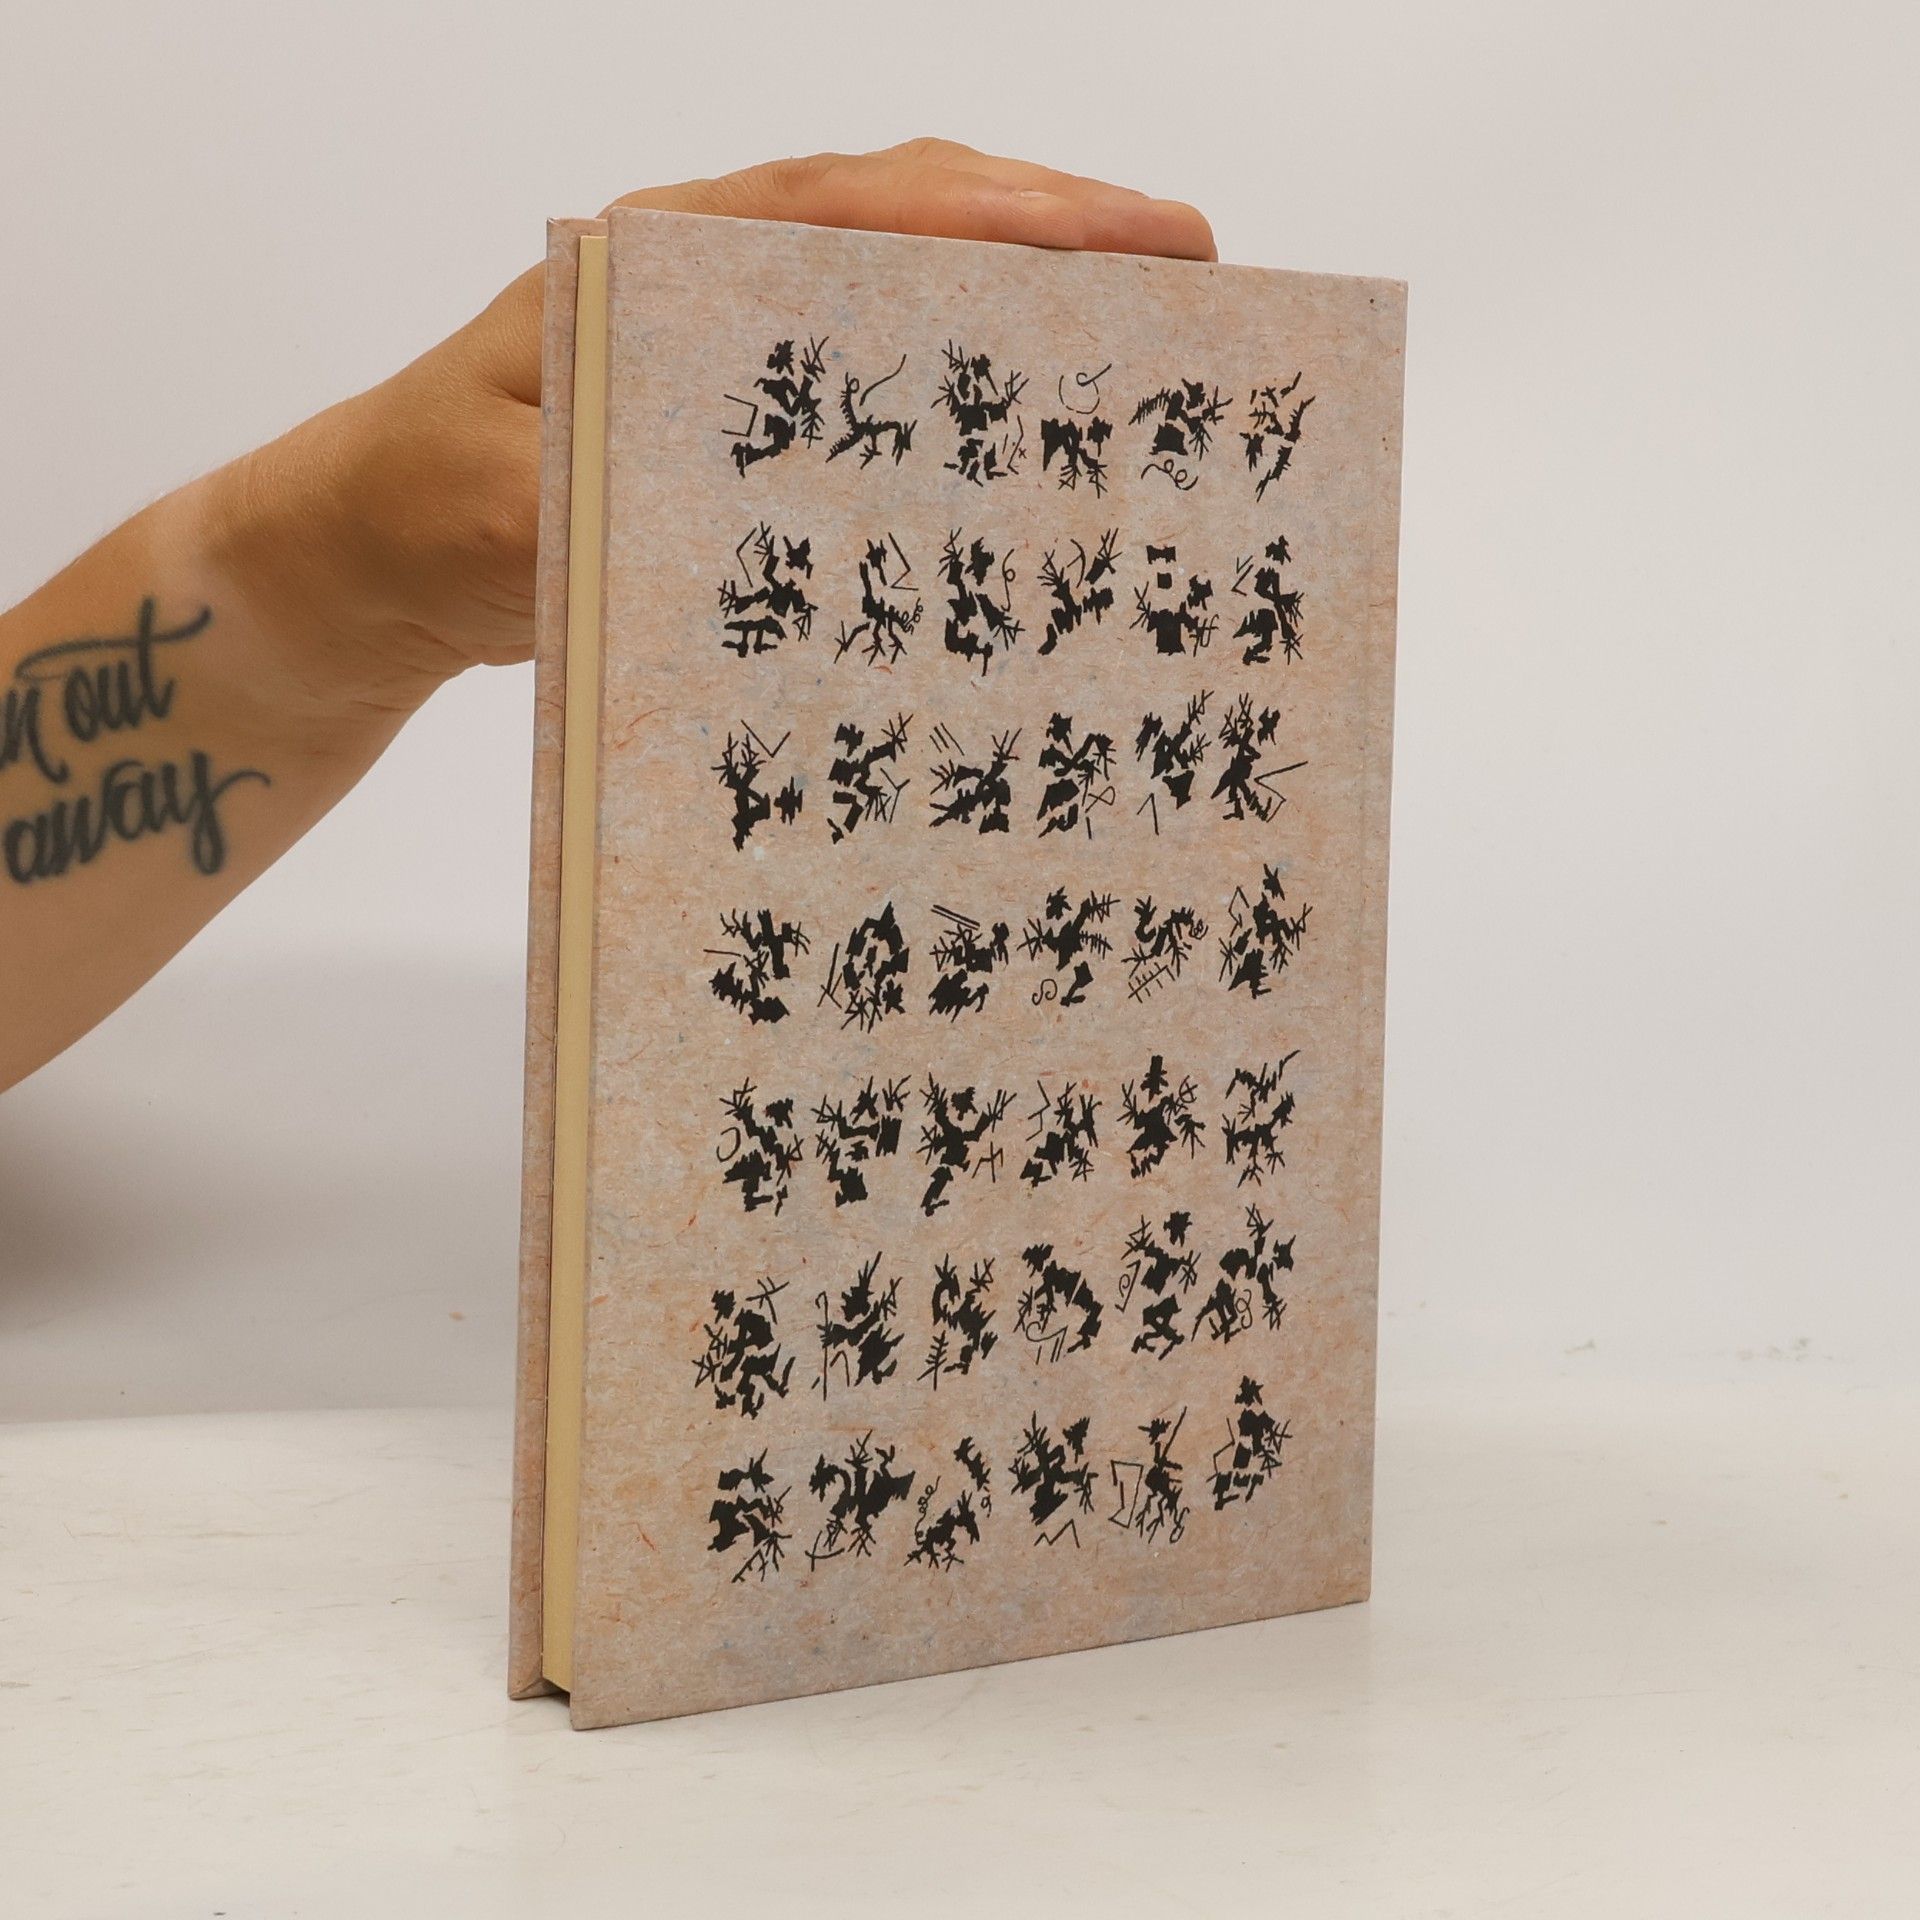 n out
away